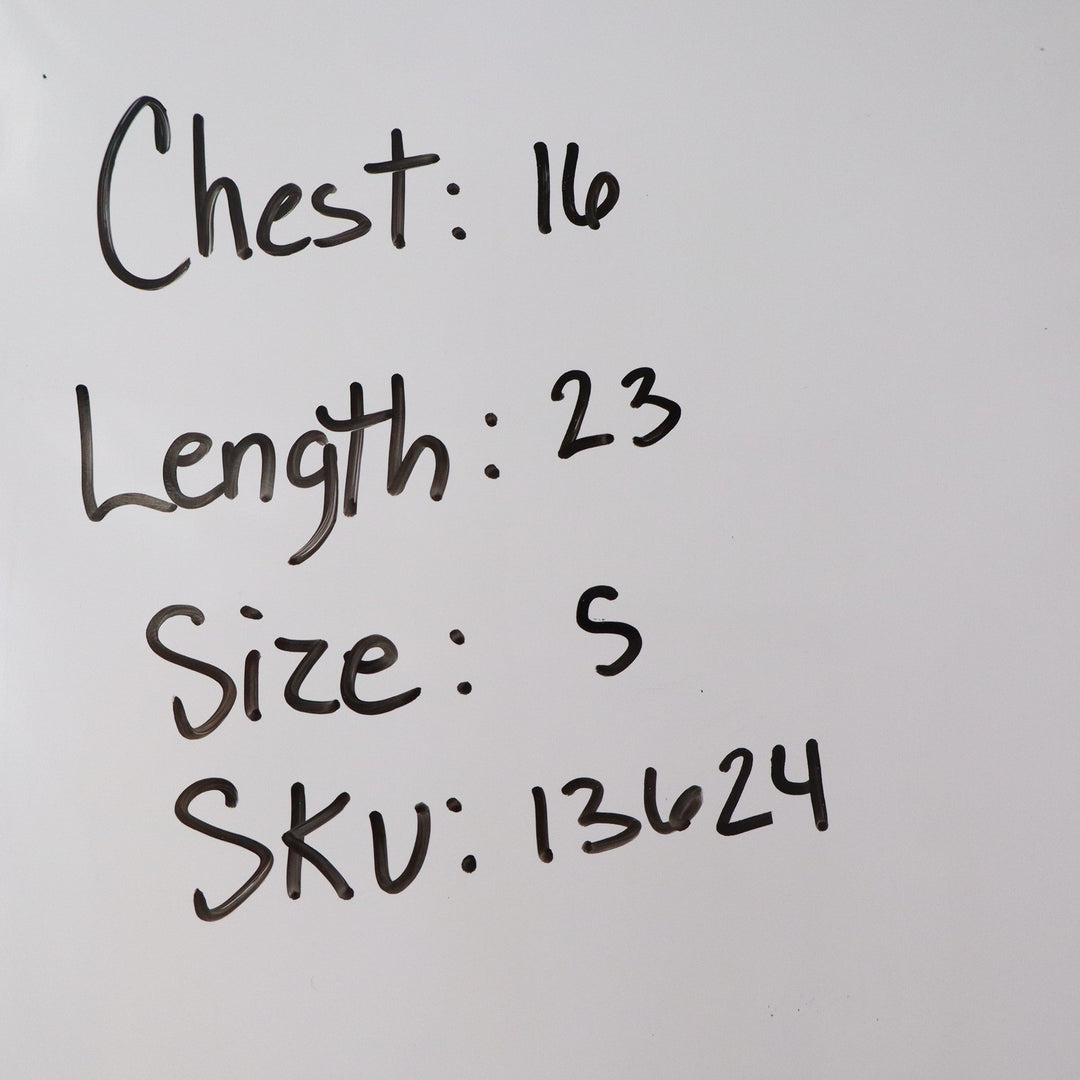 Chest: 16
Length: 23
Size: S
SKU: 13624